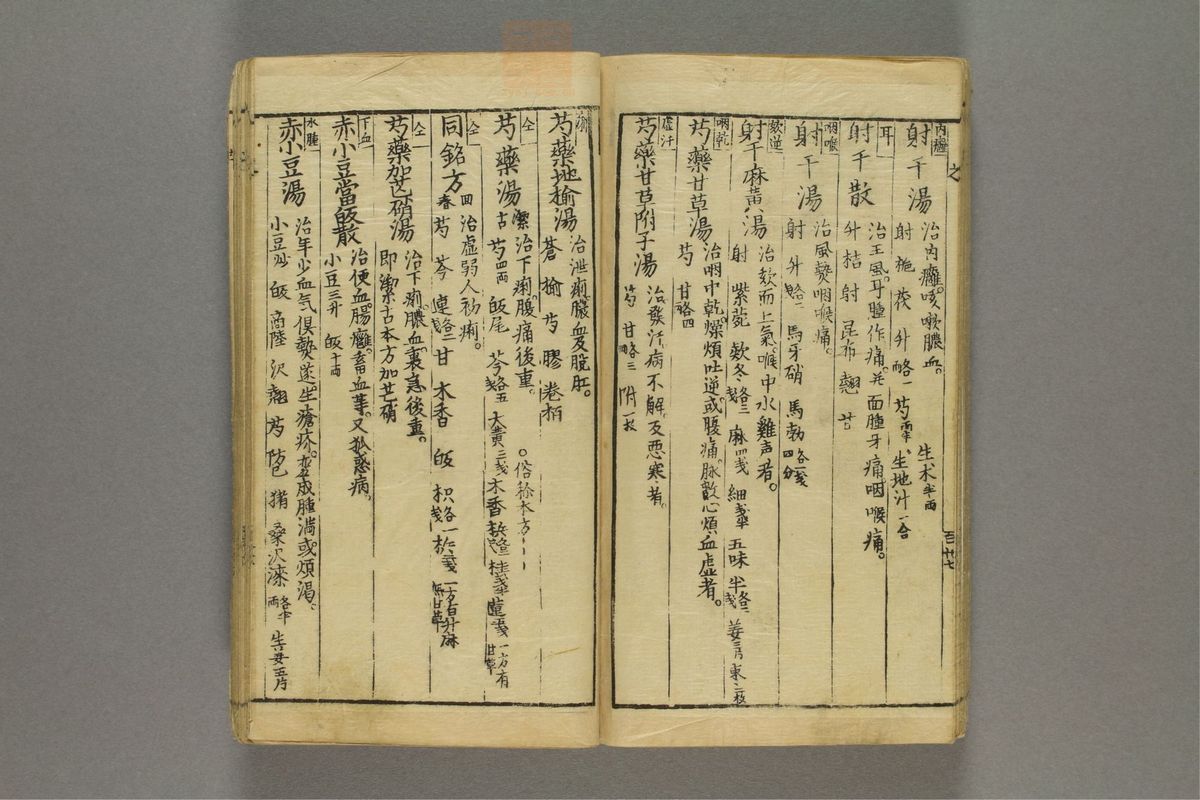 之
内癰
射干湯
治内癰。咳嗽膿血。
射 梔 茯 升略一 芍両半 生地汁一合
生术半両
耳
射干散
治王風。耳腫作痛。并面腫牙痛咽喉痛。
升 桔 射 昆布 翹 甘
咽喉
射干湯
治風熱咽喉痛。
射 升略二 馬牙硝 馬勃各一戔四分
欬逆
射干麻黄湯
治欬而上氣。喉中水雞声者。
射 紫菀 欵冬各三戔 麻四戔 細戔半 五味半各二戔 姜三片 東二枚
咽乾
芍藥甘草湯
治咽中乾。燥煩吐逆。或腹痛。脉散心煩血虚者。
芍 甘略四
虚汗
芍藥甘草附子湯
治發汗。病不解。反悪寒者。
芍 甘略三 附一枚
百廿七
芍藥地榆湯
治泄痢。膿血及脫肛。
蒼 榆 芍 膠 卷栢
仝
芍藥湯 潔古
治下痢。腹痛後重。
○俗称本方
芍四両 皈尾 芩各五 大黄三戔 木香 梹各二 桂戔半 連五戔 一方有甘草
仝
同銘方 回春
治虚弱人初痢。
芍 芩 連各二戔 甘 木香 皈 枳各一戔 一方有升麻無甘草
仝
芍藥加芒硝湯
治下痢。膿血。裏急後重。
即潔古本方加芒硝
下血
赤小豆當皈散
治便血。腸癰。畜血等。又狐惑病。
小豆三升 皈十両
水腫
赤小豆湯
治年少血气俱熱遂生瘡疥。变成腫満。或煩渴。
小豆炒 皈 商陸 沢 翹 芍 防己 猪 桑 沢漆各半両 生姜五片